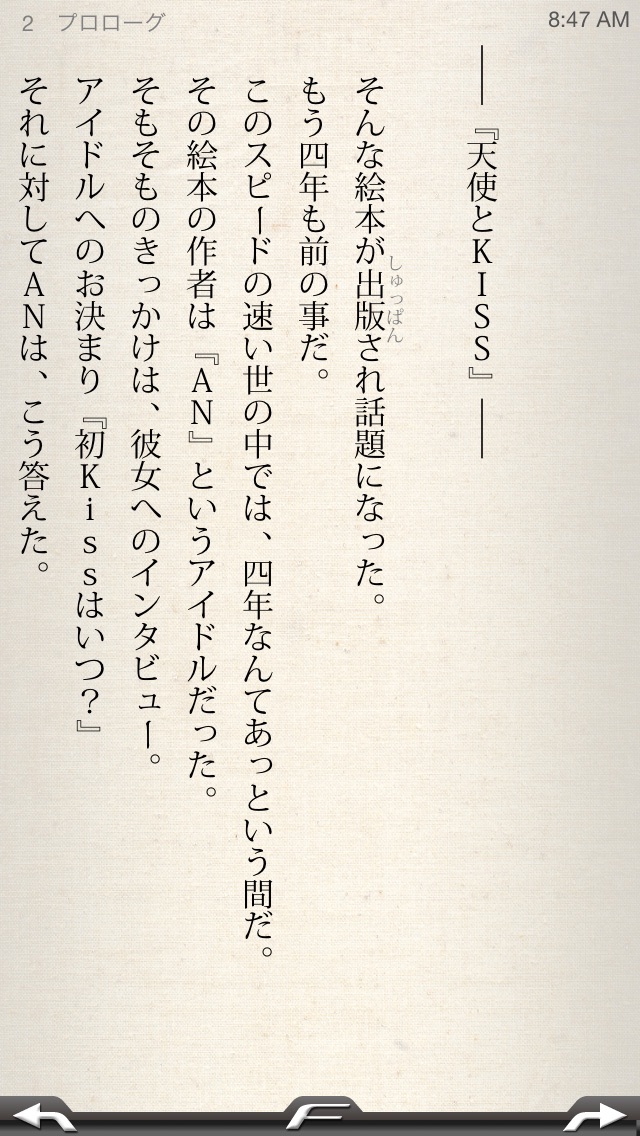 2 プロローグ
8:47 AM
――『天使とKISS』――
そんな絵本が出版され話題になった。
しゅっぱん
もう四年も前の事だ。
このスピードの速い世の中では、四年なんてあっという間だ。
その絵本の作者は『AN』というアイドルだった。
そもそものきっかけは、彼女へのインタビュー。
アイドルへのお決まり『初Kissはいつ？』
それに対してANは、こう答えた。